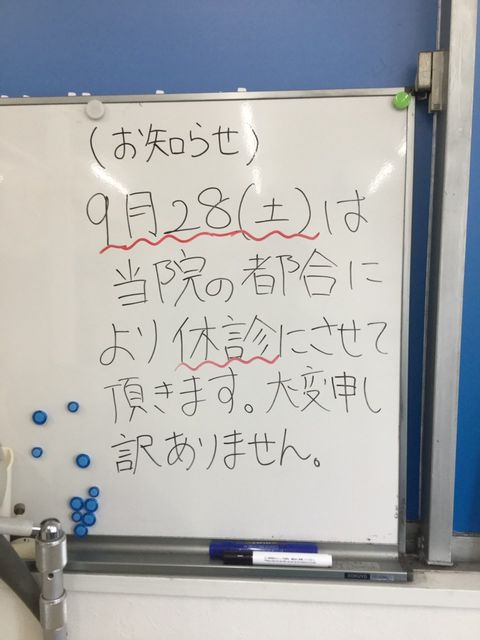 (お知らせ)
9月28(土)は
当院の都合に
より休診にさせて
頂きます。大変申し
訳ありません。
KOKUYO